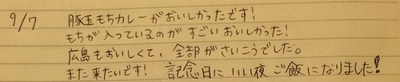 9/7 豚玉もちカレーがおいしかったです!
もちが入っているのがすごいおいしかった!
広島もおいしくて、全部がさいこうでした。
また来たいです! 記念日にいい夜ご飯になりました!